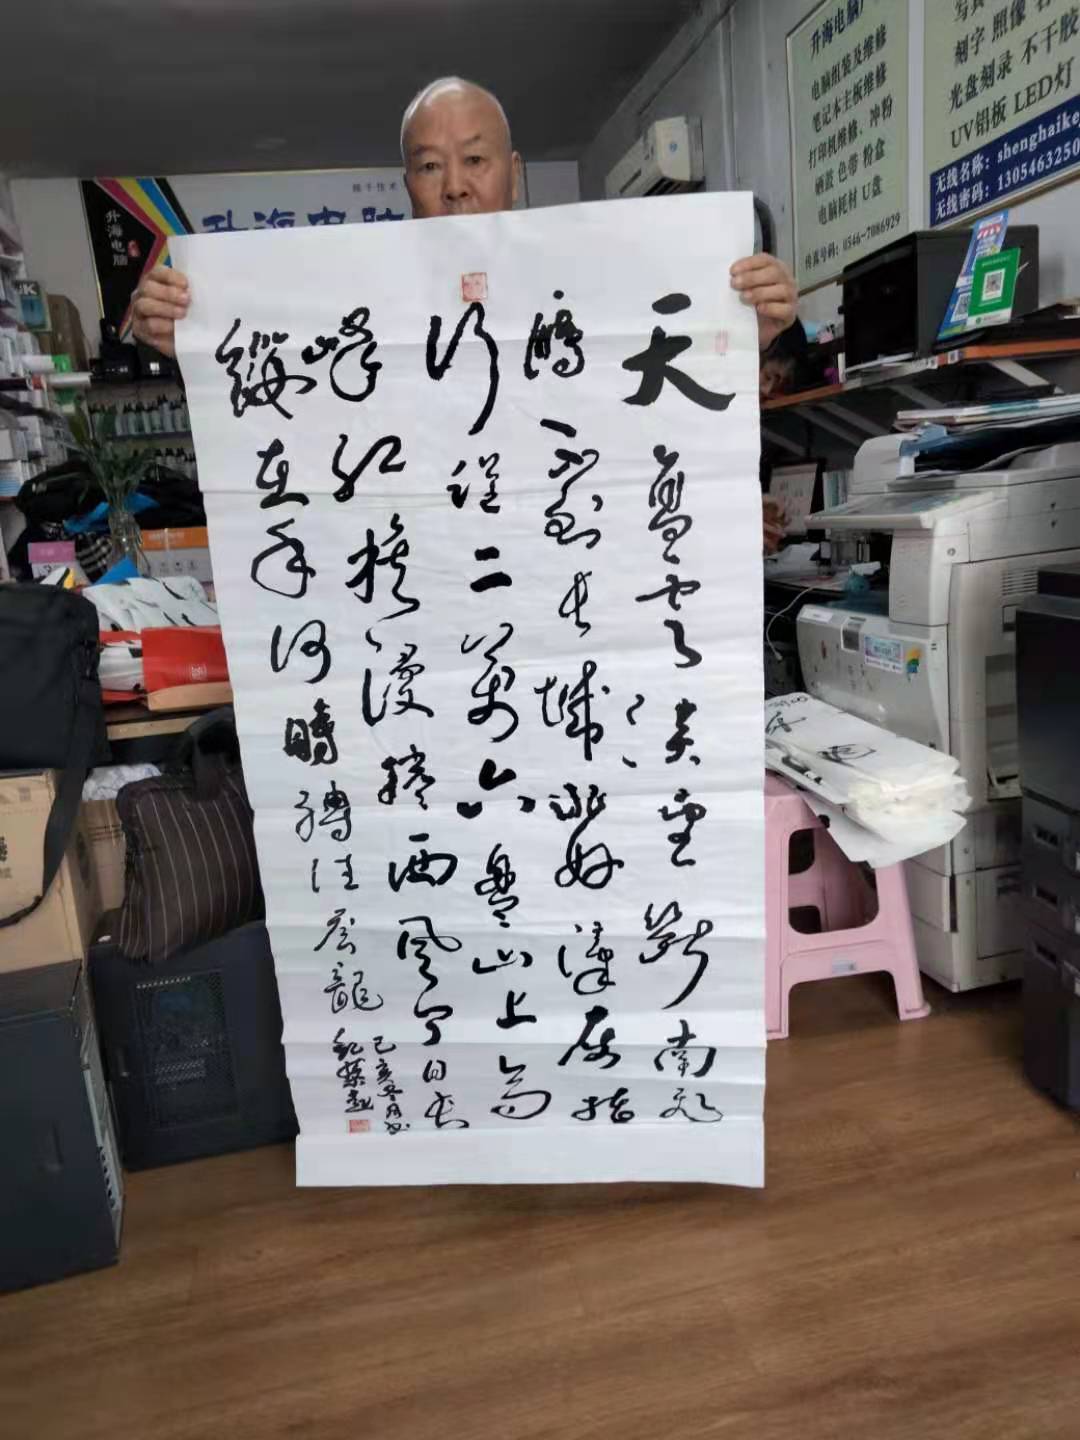 天高雲淡望斷南飛
雁不到長城非好漢屈指
行程二萬六盤山上高
峰紅旗漫捲西風今日長
纓在手何時縛住蒼龍
己亥冬月书
升海电脑
升海电脑
升海电脑
电脑组装及维修
笔记本主板维修
打印机维修、冲粉
硒鼓 色带 粉盒
电脑耗材 U盘
传真号码：0546-7086929
写真
刻字 照像
光盘刻录 不干胶
UV铝板 LED灯
无线名称：shenghaike
无线密码：1305463250